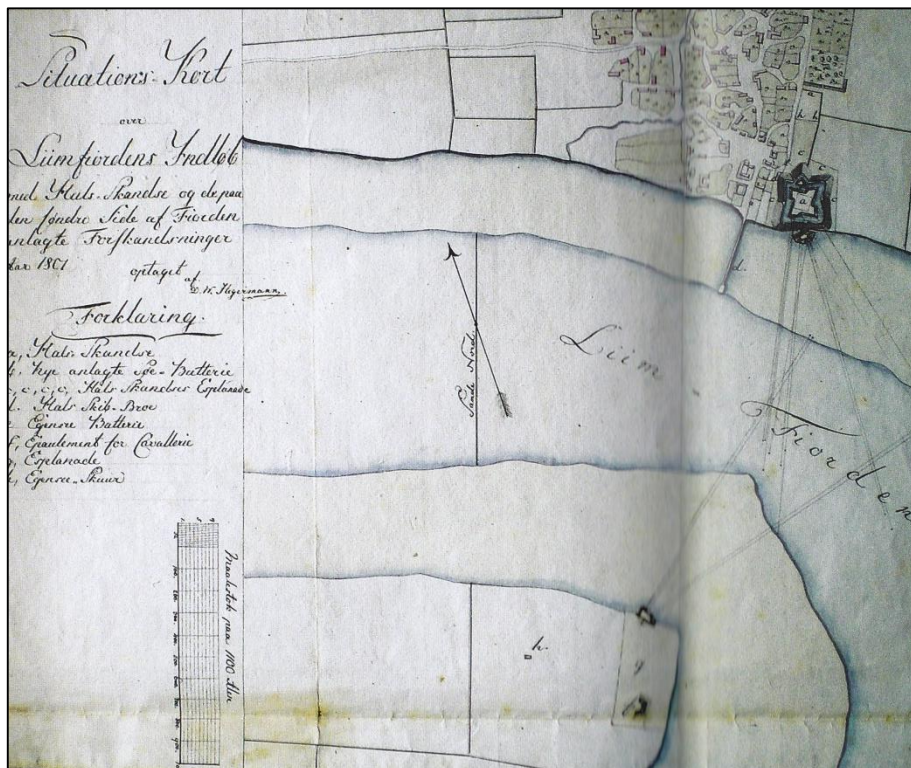 Situations-Kort
over
Liimfiordens Yndløb
med Hals-Skandse og de paa
den søndre Side af Fiorden
anlagte Forskandsninger
1801
optaget
af
Hegermann.
Forklaring.
a, Hals-Skandse
b, Nye anlagte Søe-Batterie
c, c, c, c, Hals Skandses Esplanade
d. Hals Skib-Broe
e Egensee Batterie
f, Epaulement for Cavallerie
g, Esplanade
h, Egensee-Skuur
Maalestok paa 1100 Alen
Sande Nord
Liim-
Fiorden
a
b
h h
c
c
c
d.
h.
g
f